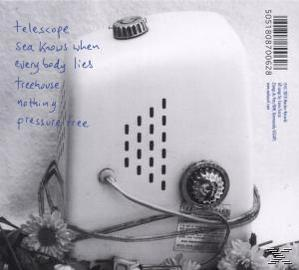 telescope
sea knows when
everybody lies
treehouse
nothing
pressure free
5051808700628